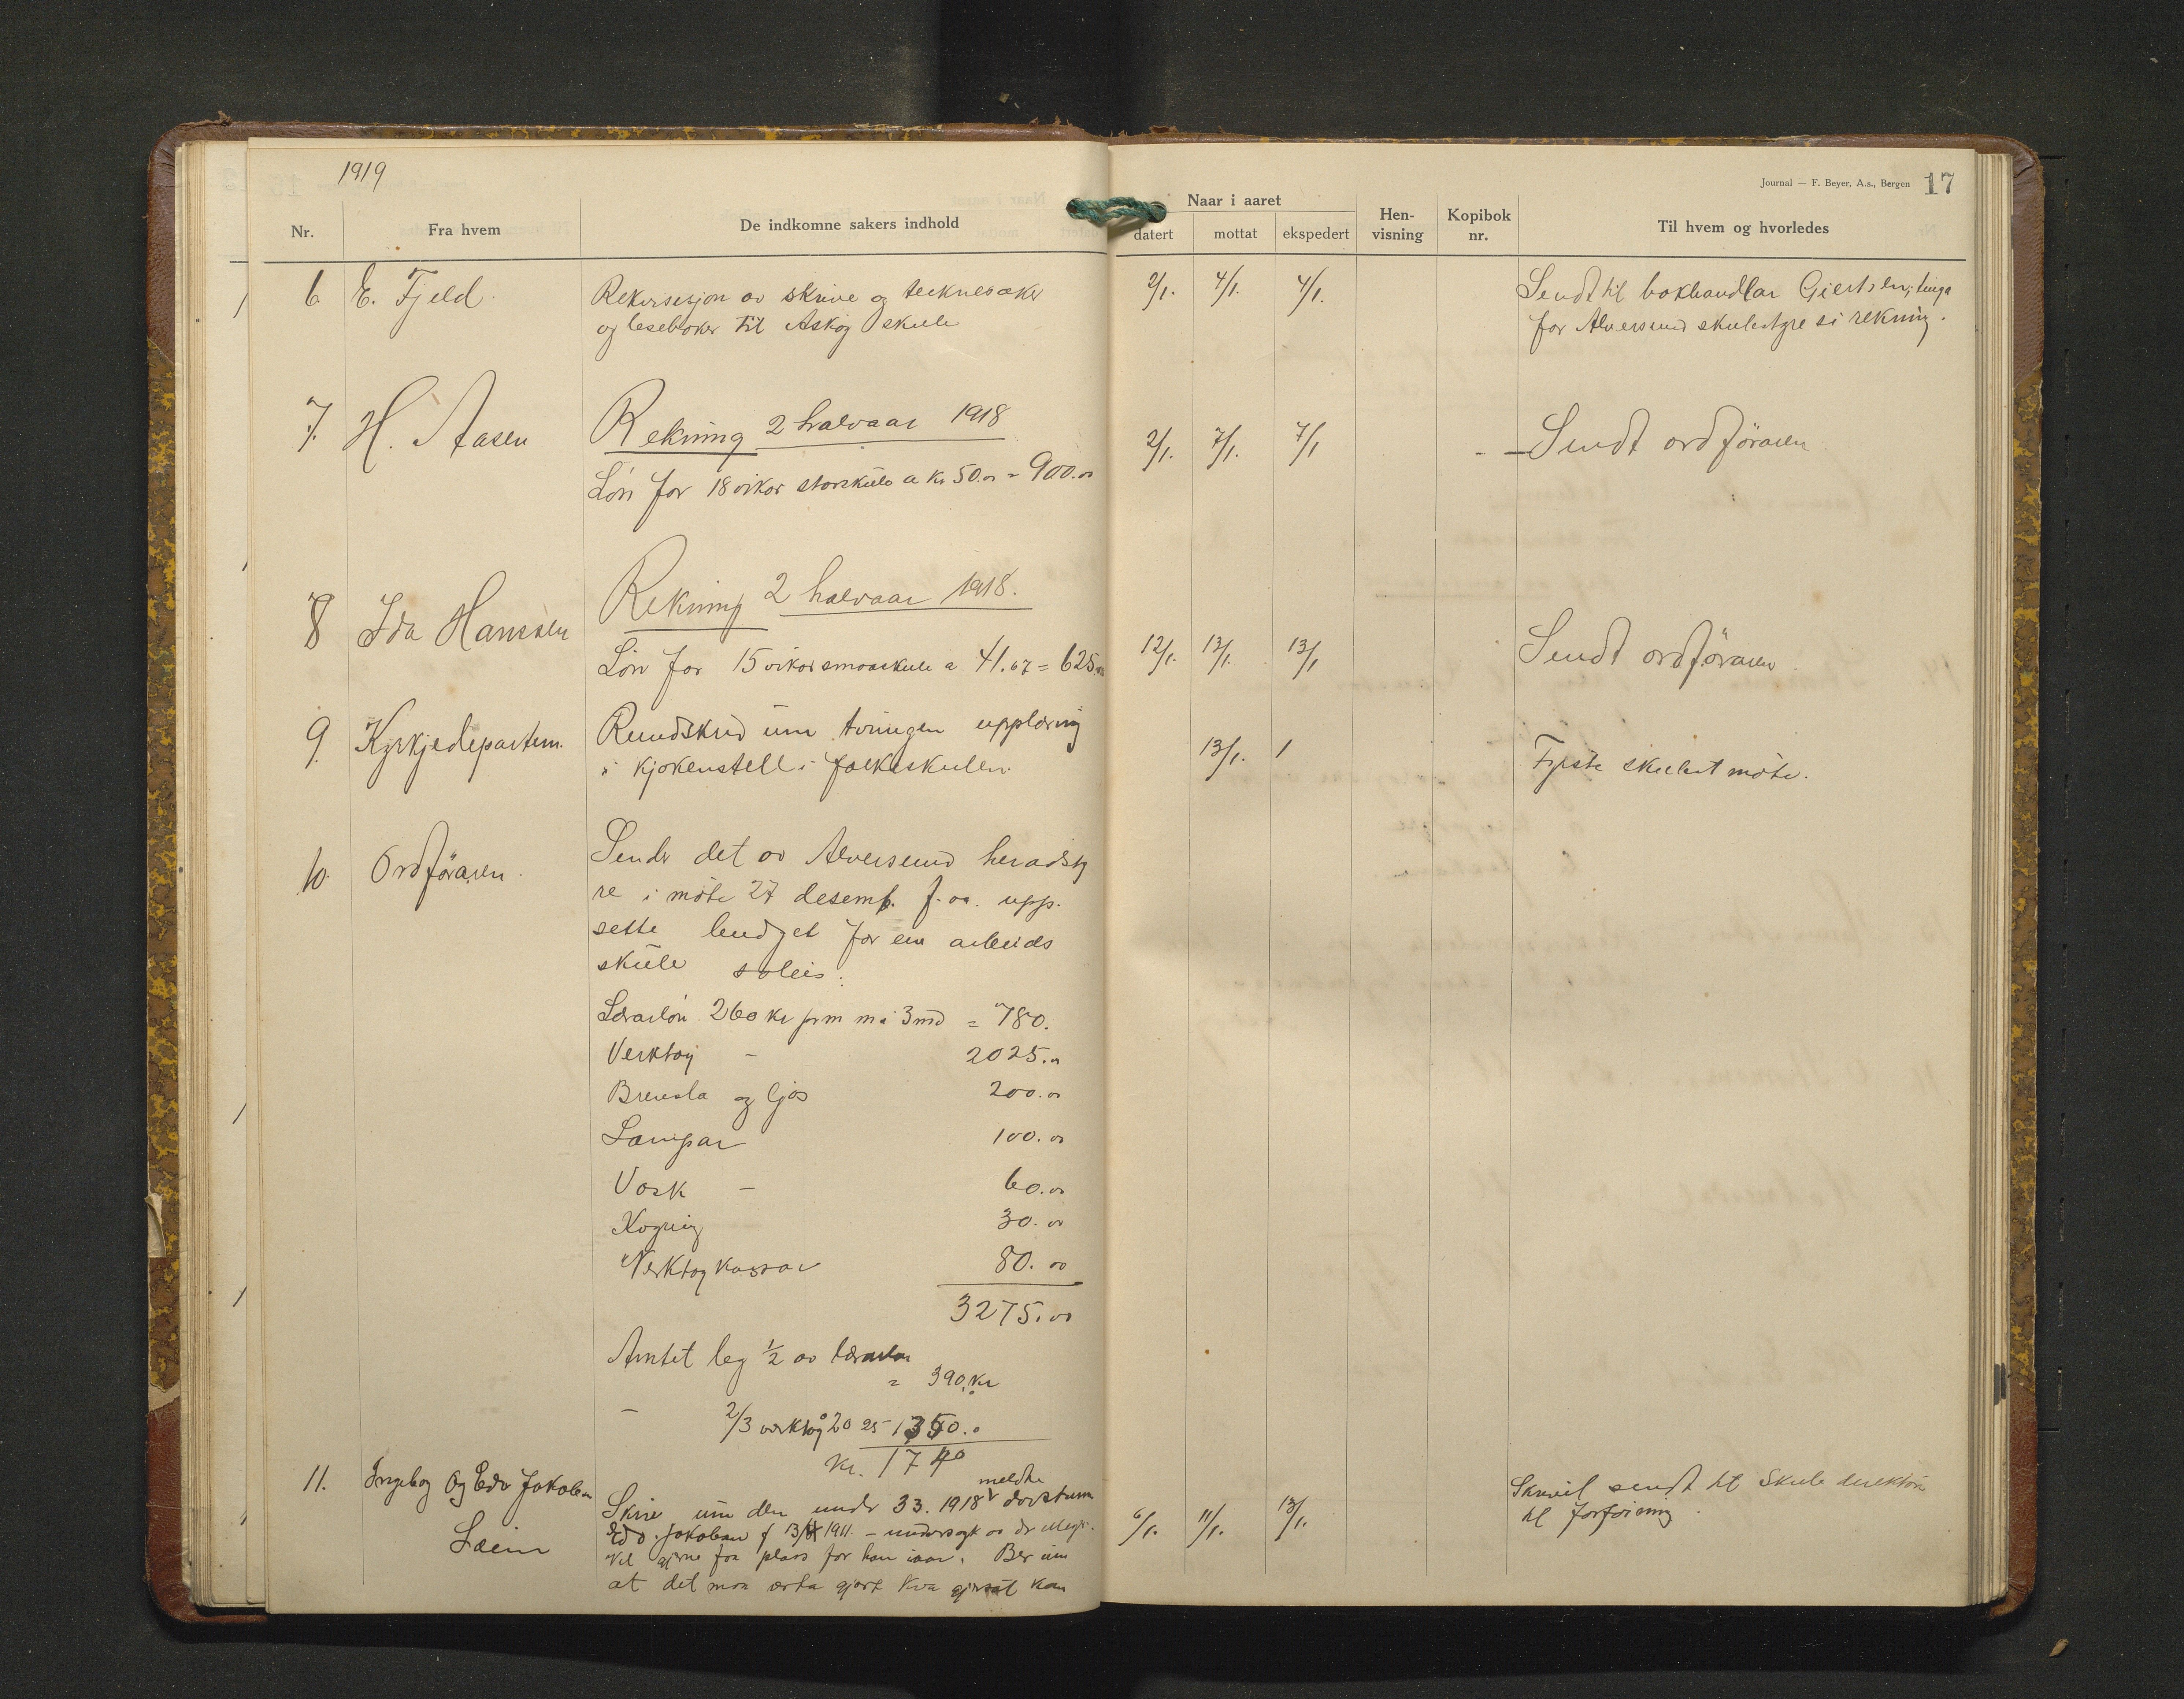 1919
Journal — F. Beyer, A.s., Bergen 17
Nr. Fra hvem De indkomne sakers indhold
Naar i aaret
datert mottat ekspedert
Hen-
visning
Kopibok
nr.
Til hvem og hvorledes
6 E. Fjeld. Rekvisisjon av skrive og teiknesaker 2/1. 4/1. 4/1. Sendt til bokhandlar Giertsen,
og lesebøker til Askøy skule for Alversund skulestyre si rekning.
7. H. Aasen Rekning 2 halvaar 1918 2/1. 7/1. 7/1 - — Sendt ordföraren.
Løn for 18 vikor storskule a kr 50.00 = 900.00
8 Ida Hanssen Rekning 2 halvaar 1918.
Løn for 15 vikor smaaskule a 41.67 = 625.00 12/1. 13/1. 13/1 Sendt ordføraren.
9. Kyrkjedepartem. Rundskriv um tvungen upplæring
i kjøkenstell i folkeskulen. 13/1. 1 Fyrste skulest møte.
10. Ordføraren. Sender det av Alversund heradsty
re i møte 27 desemb. f. aa. upp-
sette budget for ein arbeids
skule soleis:
Lærarløn 260 kr prm m. i 3 md = 780.
Verktøy — 2025.00
Brensla og ljos 200.00
Lampar 100.00
Vask — 60.00
Kogning 30.00
Verktøykassar 80.00
3275.00
Amtet leg ½ av lærarløn
= 390. kr
— 2/3 verktøy 2025 1350.00
kr. 1740
11. Ingeborg og Edv Jakobsen Skriv um den under 33. 1918 meldte døvstumme 6/1. 11/1. 13/1. Skrivet sendt til Skuledirektøren
Leiren Edv. Jakobsen f 13/ 1911. — undersøgt av dr
til
Vil gjerne faa plass for han iaar. Ber um
at det maa verta gjort kva gjerast kan